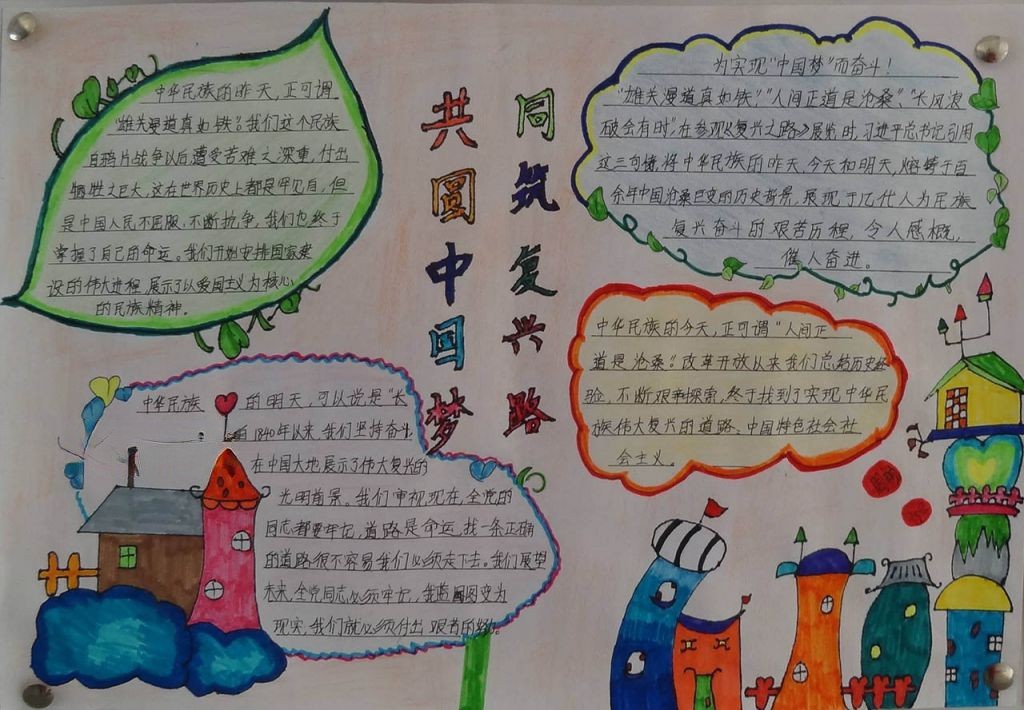 共圆中国梦
同筑复兴路
中华民族的昨天，正可谓
“雄关漫道真如铁”。我们这个民族
自鸦片战争以后遭受苦难之深重，付出
牺牲之巨大，这在世界历史上都是罕见自，但
是中国人民不屈服，不断抗争，我们也终于
掌握了自己的命运。我们开始安排国家建
设的伟大进程，展示了以爱国主义为核心
的民族精神。
为实现“中国梦”而奋斗！
“雄关漫道真如铁”，“人间正道是沧桑”、“长风浪
破会有时”，在参观《复兴之路》展览时，习进平总书记引用
这三句，将中华民族的昨天、今天和明天，熔铸于百
余年中国沧桑巨变的历史背景，展现于几代人为民族
复兴奋斗的艰苦历程，令人感慨，
催人奋进。
中华民族的今天，正可谓“人间正
道是沧桑”。改革开放以来我们总结历史经
验，不断艰和探索，终于找到了实现中华民
族伟大复兴的道路、中国特色社会社
会主义。
中华民族的明天，可以说是“长
1840年以来，我们坚持奋斗
在中国大地展示了伟大复兴的
光明前景。我们审视现在，全党的
同志都要牢记，道路是命运，找一条正确
的道路很不容易我们必须走下去。我们展望
未来，全党同志必须牢记，我蓝图变为
现实，我们就必须付出艰苦的